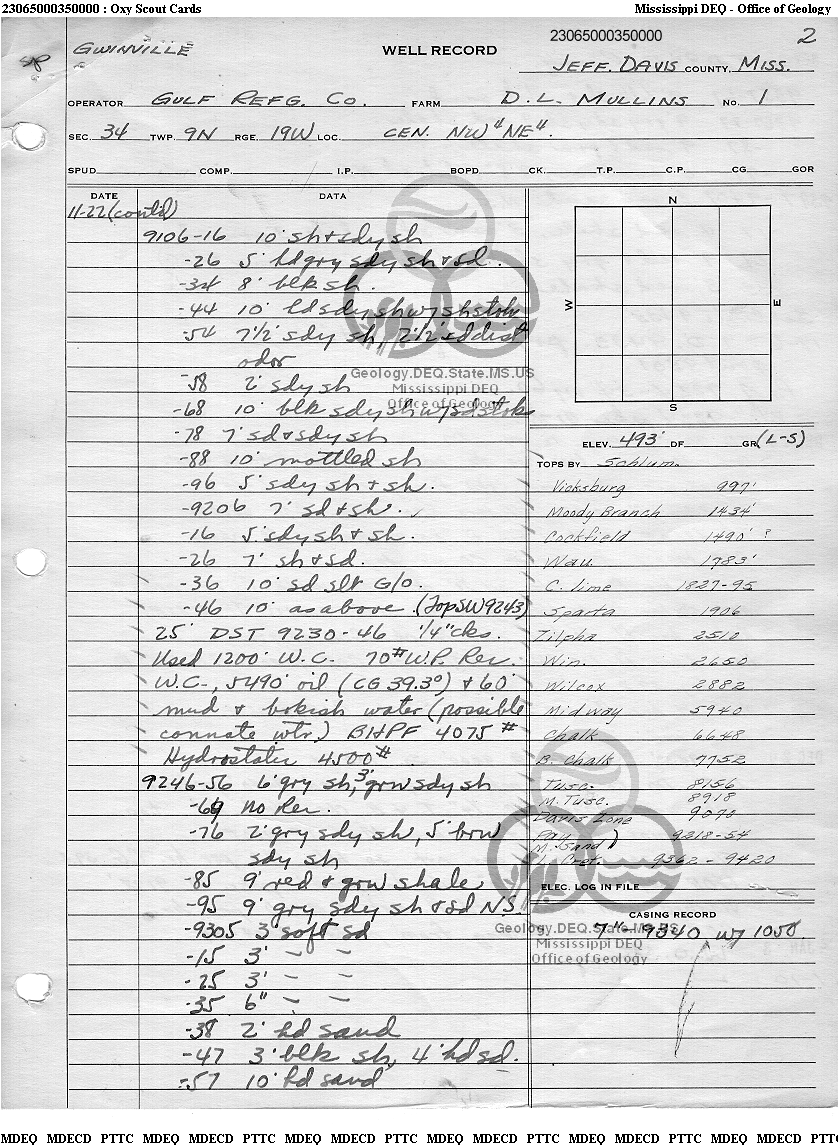 23065000350000 : Oxy Scout Cards
Mississippi DEQ - Office of Geology
GWINVILLE
WELL RECORD
23065000350000
2
JEFF. DAVIS COUNTY, MISS.
OPERATOR GULF REFG. CO. FARM D.L. MULLINS NO. 1
SEC. 34 TWP. 9N RGE. 19W LOC. CEN. NW"NE"
SPUD COMP. I.P. BOPD. CK. T.P. C.P. CG GOR
DATE DATA
11-22 (cont'd)
9106-16 10' sh & sdy sh
-26 5' hd gry sdy sh & sd.
-34 8' blk sh.
-44 10' hd sdy sh w/ sh stok
-54 7 1/2' sdy sh, 2 1/2' sd dist
odor
-58 2' sdy sh
-68 10' blk sdy sh w/ sd stok
-78 7' sd & sdy sh
-88 10' mottled sh
-96 5' sdy sh & sh.
-9206 7' sd & sh.
-16 5' sdy sh & sh.
-26 7' sh & sd.
-36 10' sd slt G/O.
-46 10' as above. (Top SW 9243)
25' DST 9230-46 1/4" cks.
Used 1200' W.C. 70# W.P. Rec.
W.C., 5490' oil (CG 39.3°) & 60'
mud & brkish water (possible
connate wtr.) BHPF 4075#
Hydrostatic 4500#
9246-56 6' gry sh, 3' grn sdy sh
-69 no Rec.
-76 2' gry sdy sh, 5' brn
sdy sh
-85 9' red & grn shale
-95 9' gry sdy sh & sd N.S.
-9305 3' soft sd
-15 3' - -
-25 3' - -
-35 6" - -
-38 2' hd sand
-47 3' blk sh, 4' hd sd.
-57 10' hd sand
N
W
E
S
ELEV. 493' DF. GR (L-S)
TOPS BY Schlum.
Vicksburg 997'
Moody Branch 1434'
Cockfield 1490' ?
Wau. 1783'
C. lime 1827-95
Sparta 1906
Zilpha 2510
Win. 2650
Wilcox 2882
Midway 5940
Chalk 6648
B. Chalk 7752
Tusc. 8156
M. Tusc. 8918
Davis Zone 9070
Pay ) 9218-54
M. Sand
L. Cret. 9362-9420
ELEC. LOG IN FILE
CASING RECORD
7"- 9340 w/ 1050.
Geology.DEQ.State.MS.US
Mississippi DEQ
Office of Geology
Geology.DEQ.State.MS.US
Mississippi DEQ
Office of Geology
MDEQ MDECD PTTC MDEQ MDECD PTTC MDEQ MDECD PTTC MDEQ MDECD PTTC MDEQ MDECD PTTC MDEQ MDECD PTTC